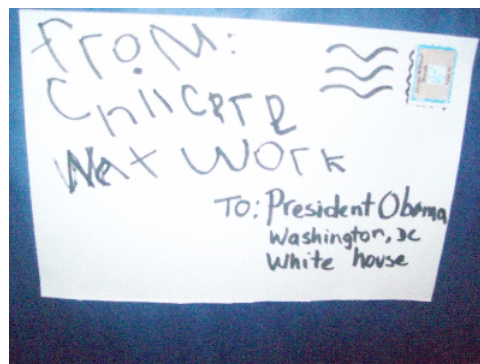 FrOM:
Net WOrk
To: President Obama,
Washington, DC
White house